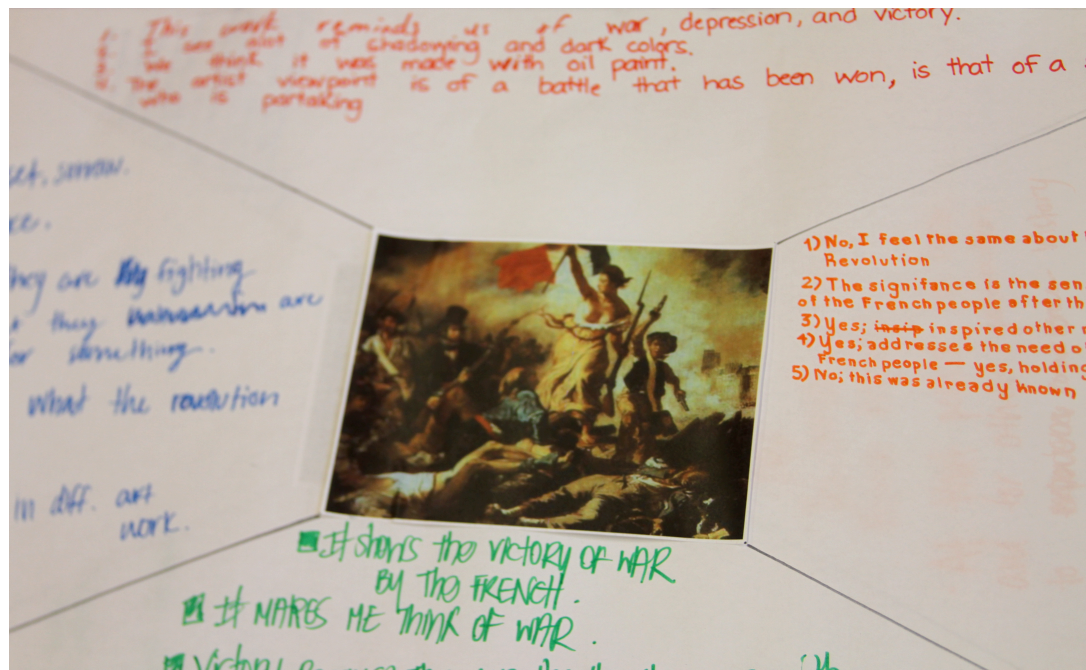 1. This work reminds us of war, depression, and victory.
of shadowing and dark colors.
We think it was made with oil paint.
The artist viewpoint is of a battle that has been won, is that of a
who is partaking
set, sorrow.
they are fighting
they are
for something.
what the revolution
in diff. art
work.
1) No, I feel the same about
Revolution
2) The signifance is the sen
of the French people after th
3) Yes; insip inspired other
4) Yes; addresses the need o
French people — yes, holding
5) No; this was already known
It shows the victory of WAR
BY The FRENCH.
It MAKES ME Think OF WAR.
Victory